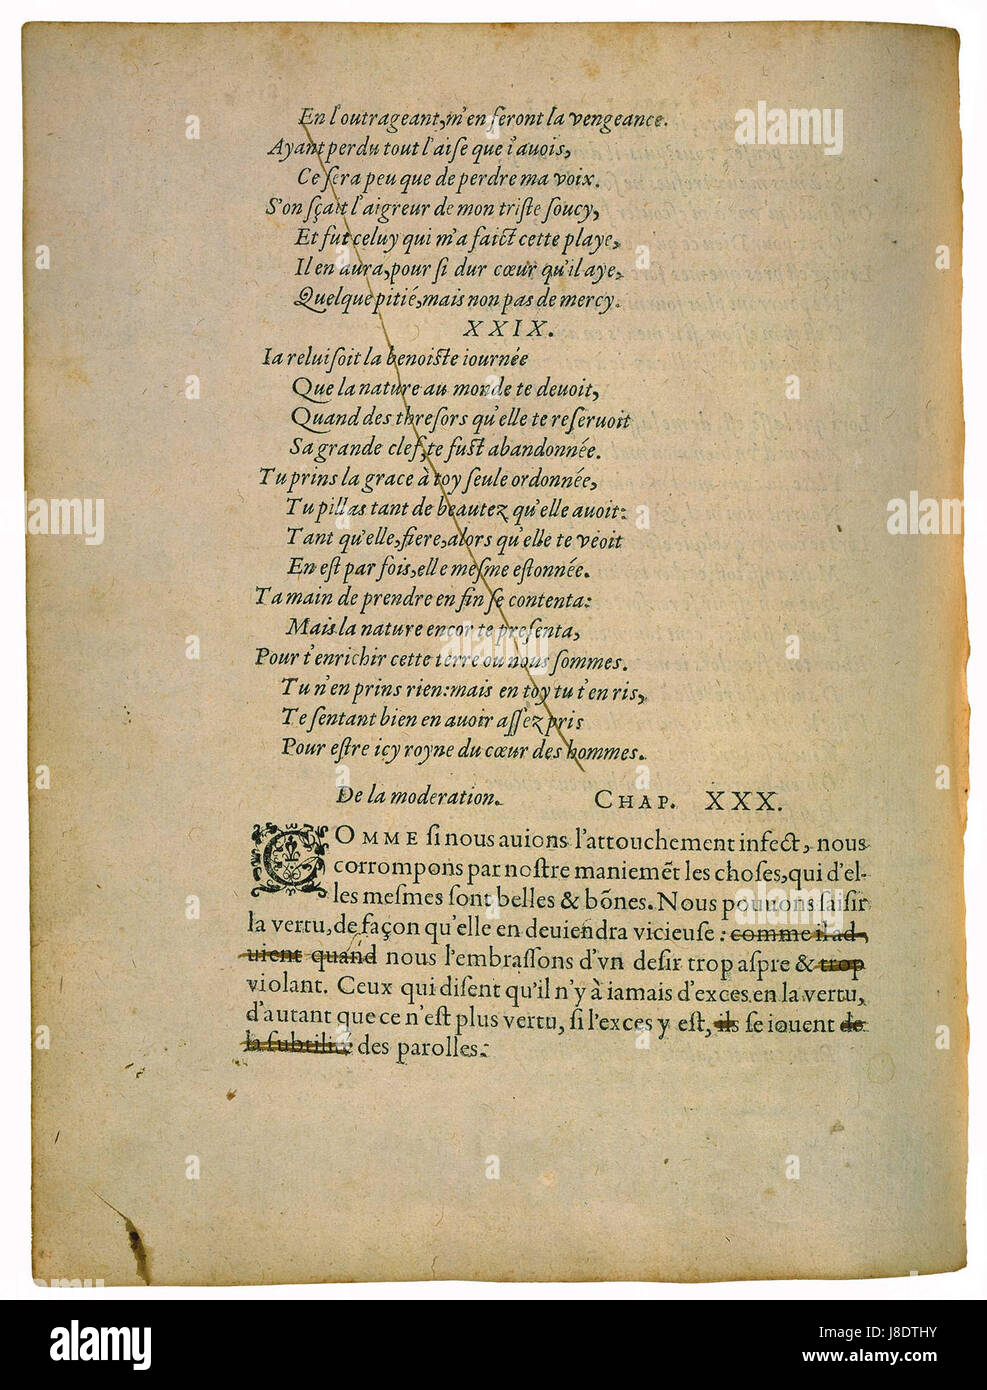 En l'outrageant, m'en ſeront la vengeance.
Ayant perdu tout l'aiſe que i'auois,
Ce ſera peu que de perdre ma voix.
S'on ſçait l'aigreur de mon triſte ſoucy,
Et fut celuy qui m'a faict cette playe,
Il en aura, pour ſi dur cœur qu'il aye,
Quelque pitié, mais non pas de mercy.
XXIX.
Ia reluiſoit la benoiſte iournée
Que la nature au monde te deuoit,
Quand des threſors qu'elle te reſeruoit
Sa grande clef, te fuſt abandonnée.
Tu prins la grace à toy ſeule ordonnée,
Tu pillas tant de beautez qu'elle auoit:
Tant qu'elle, fiere, alors qu'elle te veoit
En eſt par fois, elle meſme eſtonnée.
Ta main de prendre en fin ſe contenta:
Mais la nature encor te preſenta,
Pour t'enrichir cette terre ou nous ſommes.
Tu n'en prins rien: mais en toy tu t'en ris,
Te ſentant bien en auoir aſſez pris
Pour eſtre icy royne du cœur des hommes.
De la moderation. CHAP. XXX.
COMME ſi nous auions l'attouchement infect, nous
corrompons par noſtre maniemēt les choſes, qui d'el-
les meſmes ſont belles & bōnes. Nous pouuons ſaiſir
la vertu, de façon qu'elle en deuiendra vicieuſe: comme il ad-
uient quand nous l'embraſſons d'vn deſir trop aſpre & trop
violant. Ceux qui diſent qu'il n'y à iamais d'exces en la vertu,
d'autant que ce n'eſt plus vertu, ſi l'exces y eſt, ils ſe iouent de
la ſubtilité des parolles.
alamy
Image ID: J8DTHY
www.alamy.com